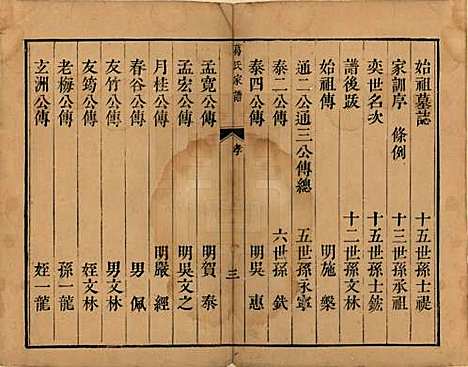 始祖墓誌 十五世孫士禔
家訓序 條例 十三世孫承祖
奕世名次 十五世孫士鋐
譜後跋 十二世孫文林
始祖傳 明施槃
通二公通三公傳總 五世孫永寧
泰二公傳 六世孫釴
泰四公傳 明吳惠
氏家譜 孝 三
孟寛公傳 明賀泰
孟宏公傳 明吳文之
月桂公傳 明嚴經
春谷公傳 男佩
友竹公傳 男文林
友筠公傳 姪文林
老梅公傳 孫一龍
玄洲公傳 姪一龍